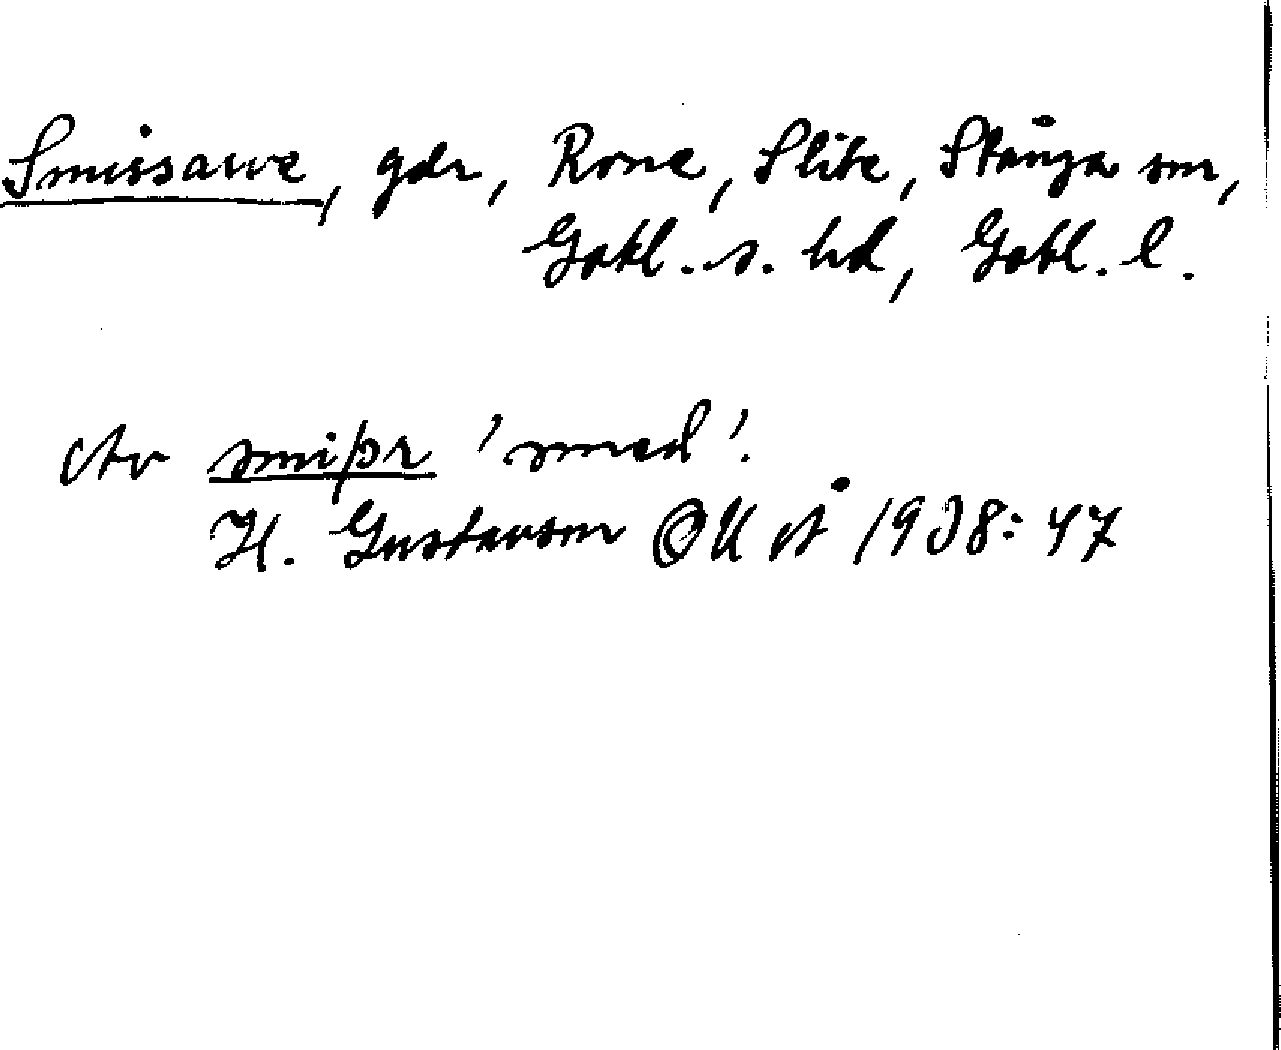 Smissarve, gdr, Rone, Slite, Stånga snr,
Gotl. s. hd, Gotl. l.
Av smiþr 'smed'.
H. Gustavson OUÅ 1938: 47